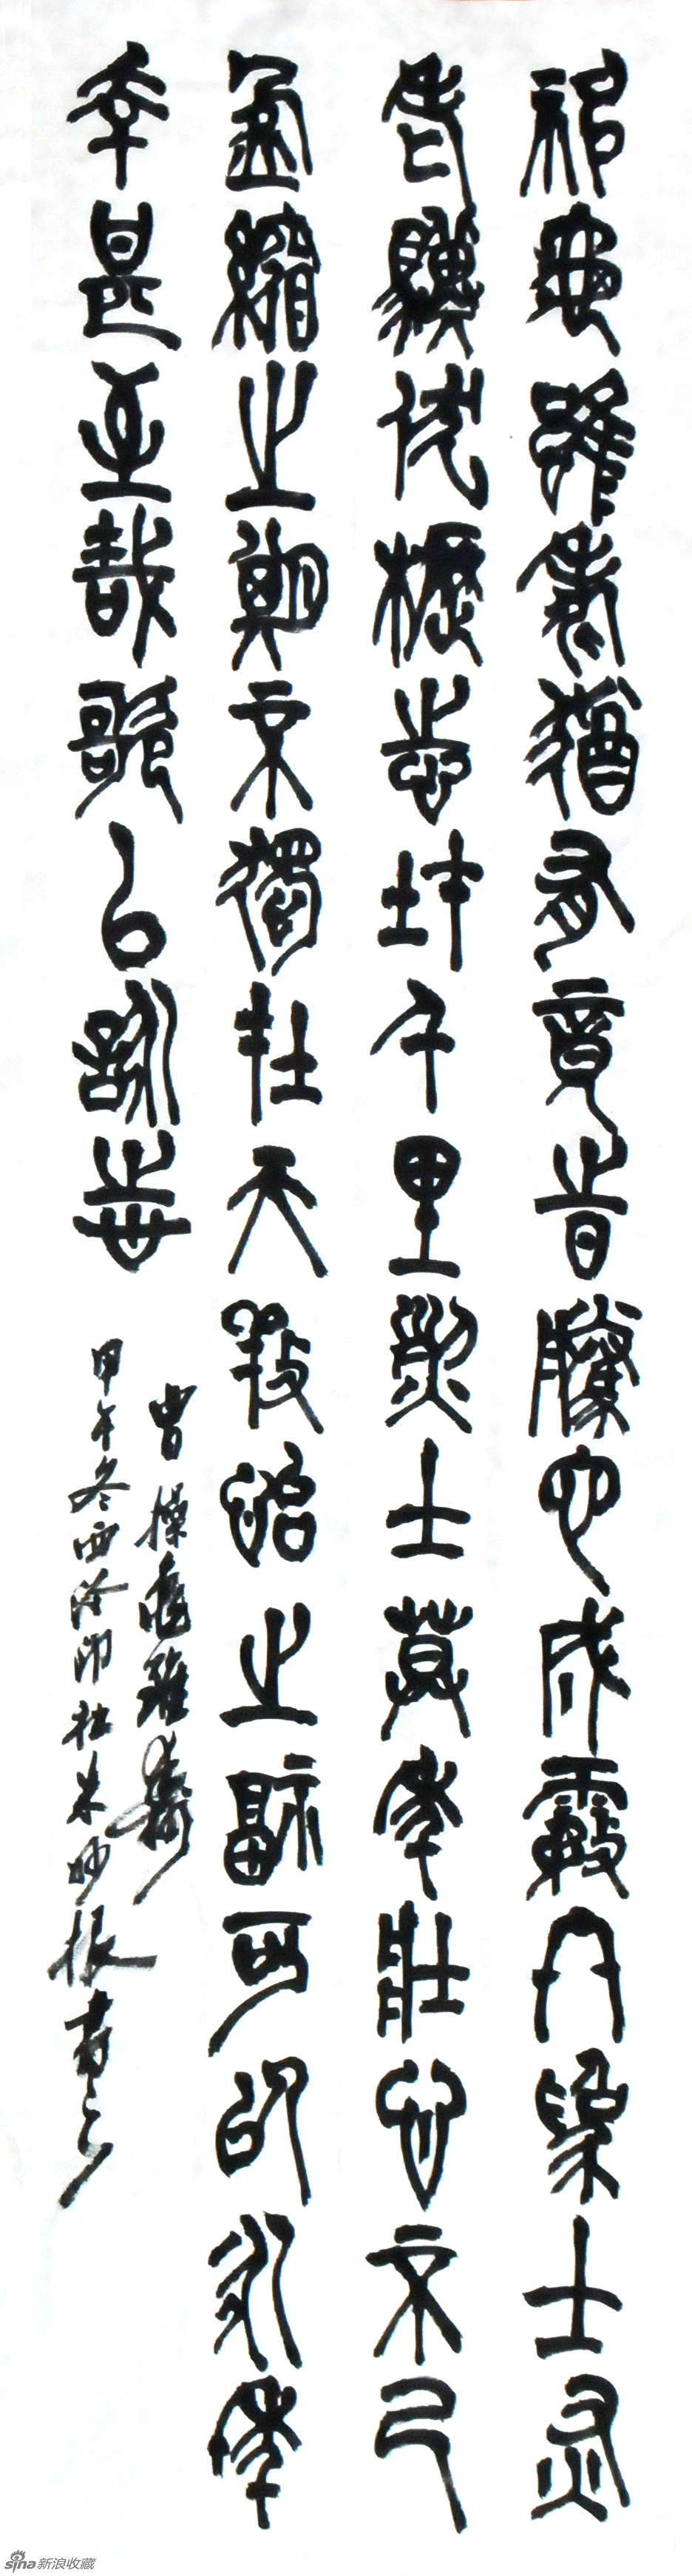 神龜雖壽猶有竟時騰蛇成霧終為土灰
老驥伏櫪志在千里烈士暮年壯心不已
盈縮之期不獨在天養怡之福可得永年
幸甚至哉歌以詠志
曹操龜雖壽
甲午冬西泠印社朱妙根書之
sina新浪收藏